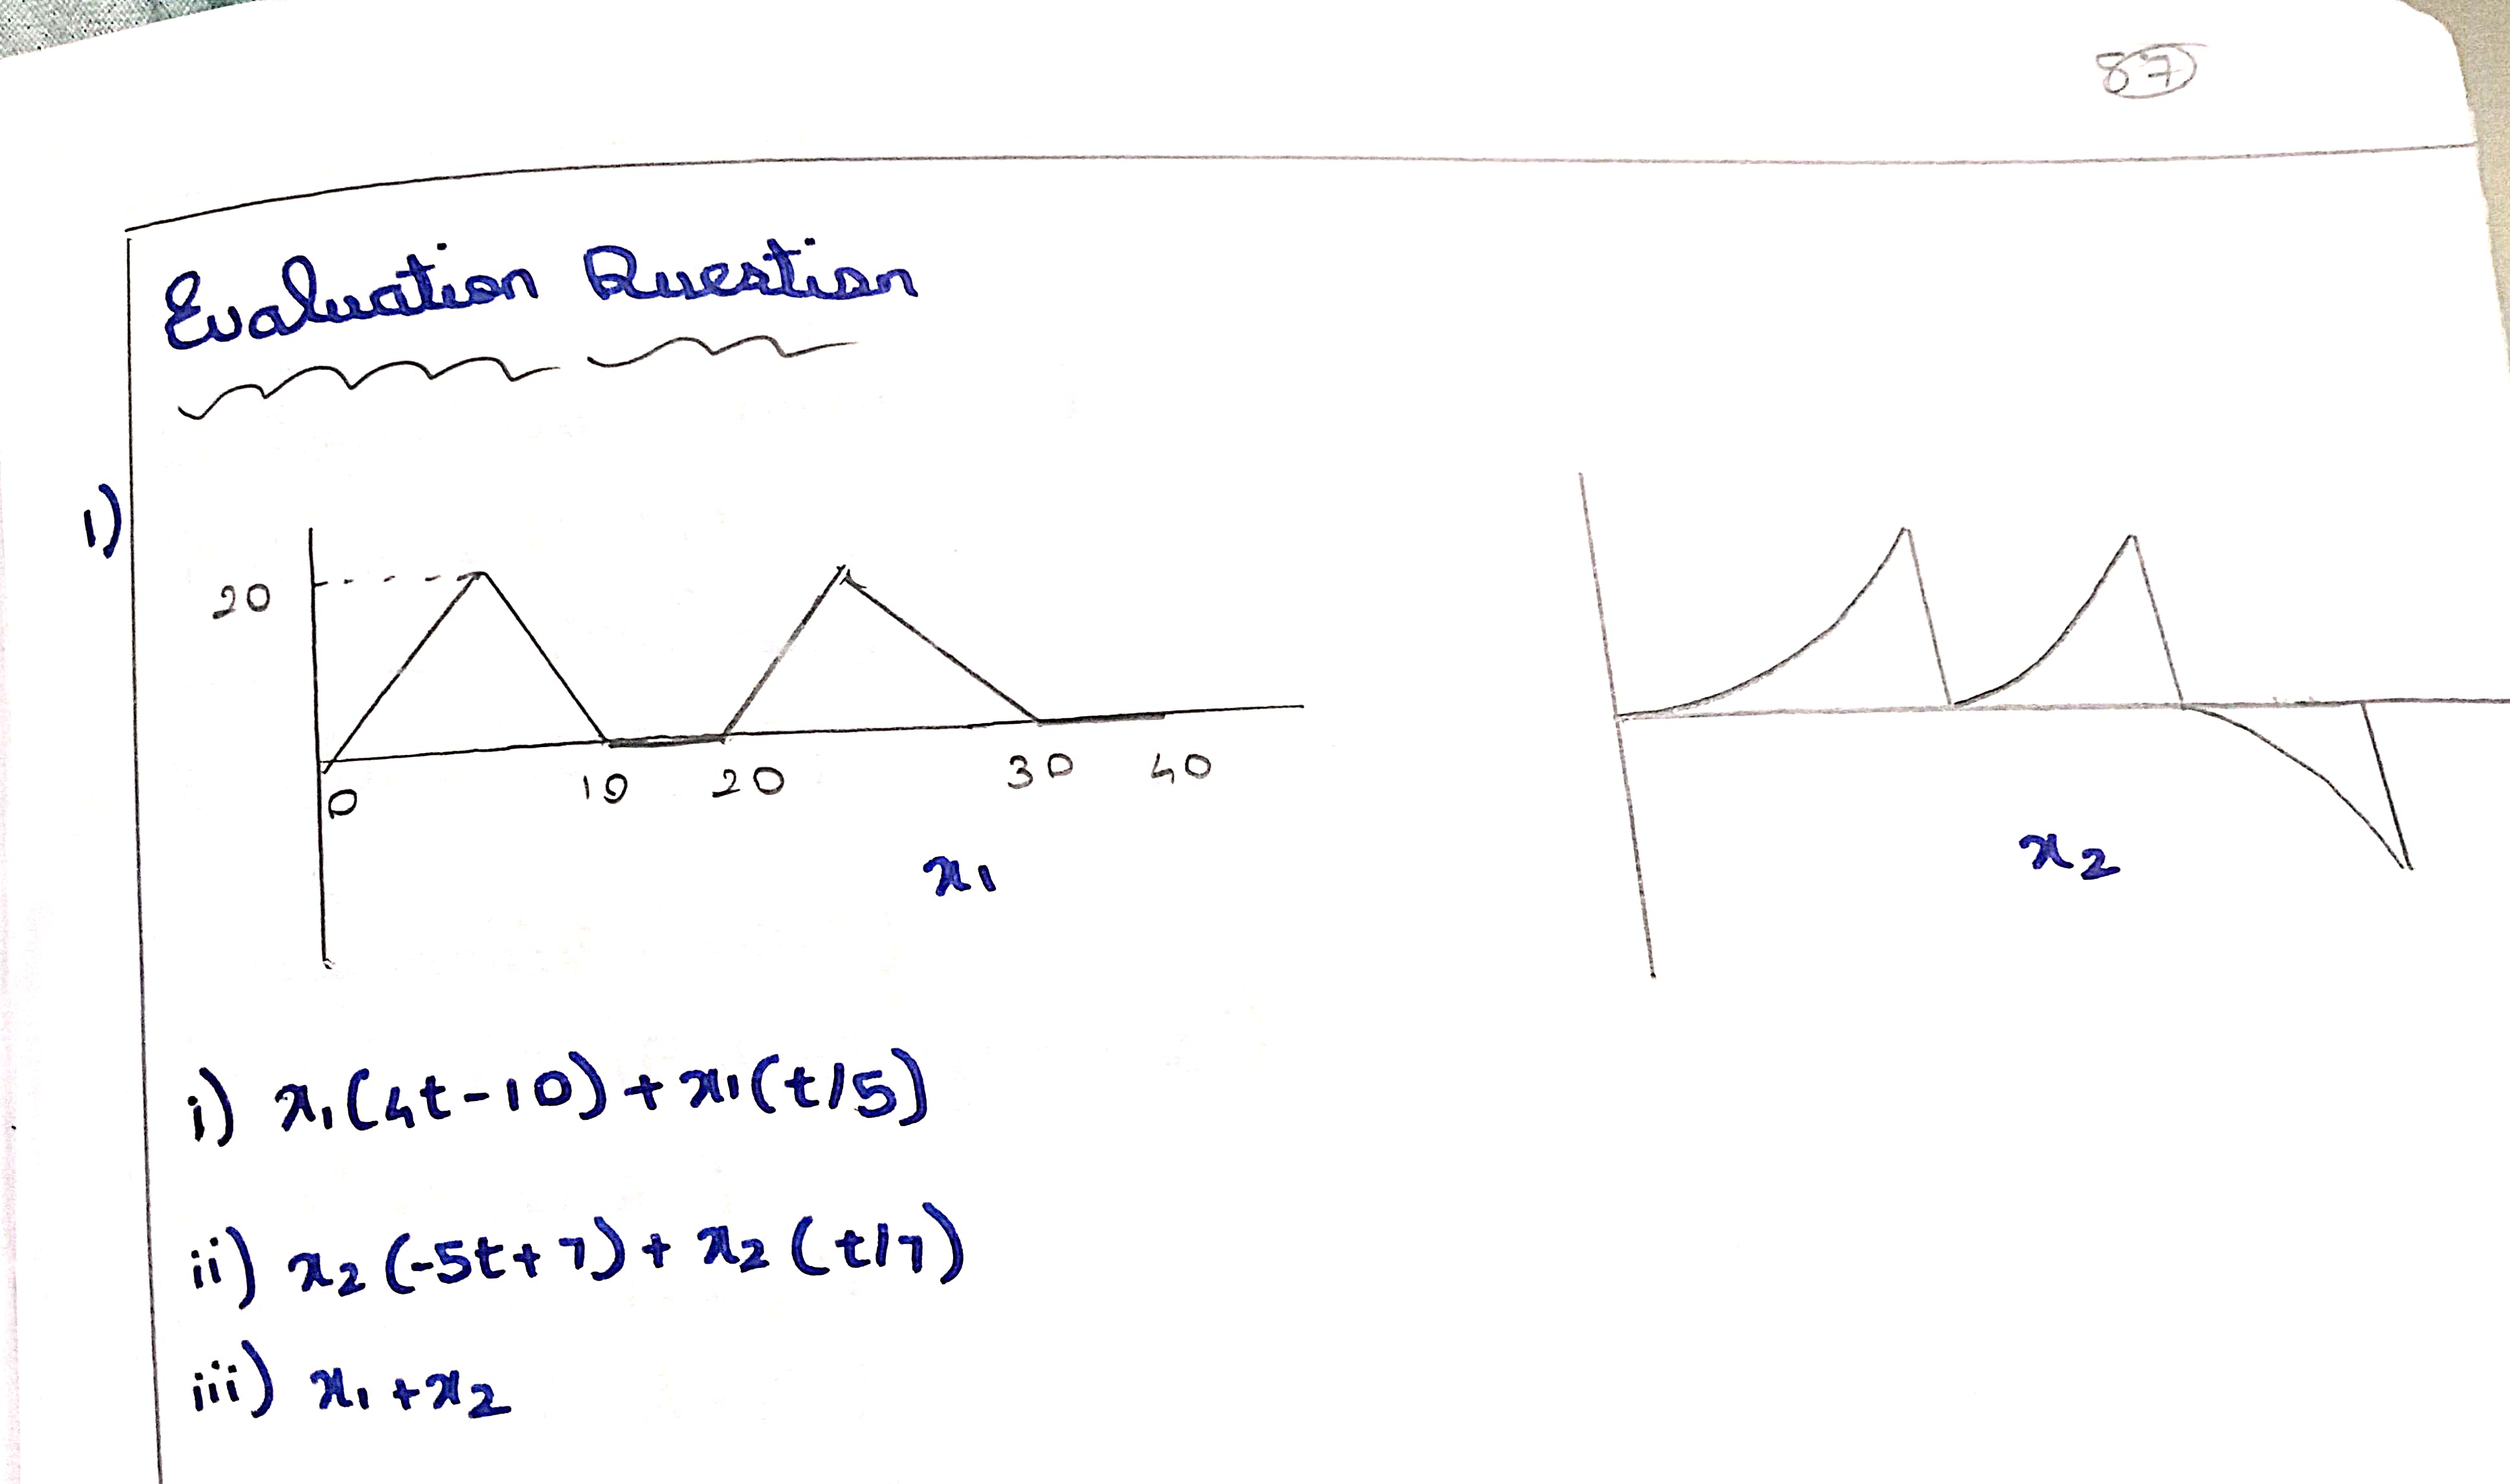 87
Evaluation Question
1)
20
0 10 20 30 40
x1
x2
i) x1(4t-10)+x1(t/5)
ii) x2(-5t+7)+x2(t/7)
iii) x1+x2